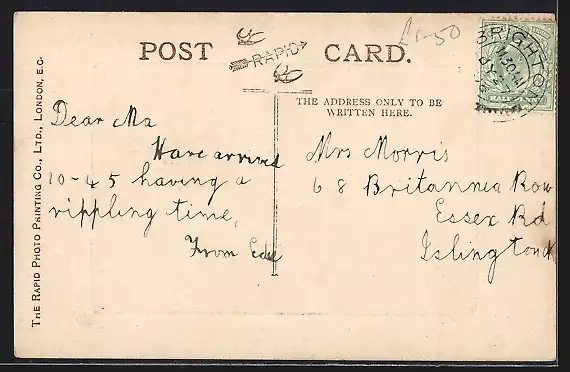 POST CARD.
RAPID
BRIGHTON
THE ADDRESS ONLY TO BE
WRITTEN HERE.
Dear Ma
Have arrived
10-45 having a
rippling time,
From Ede
Mrs Morris
68 Britannea Row
Essex Rd
Islington N
THE RAPID PHOTO PRINTING CO., LTD., LONDON, E.C.